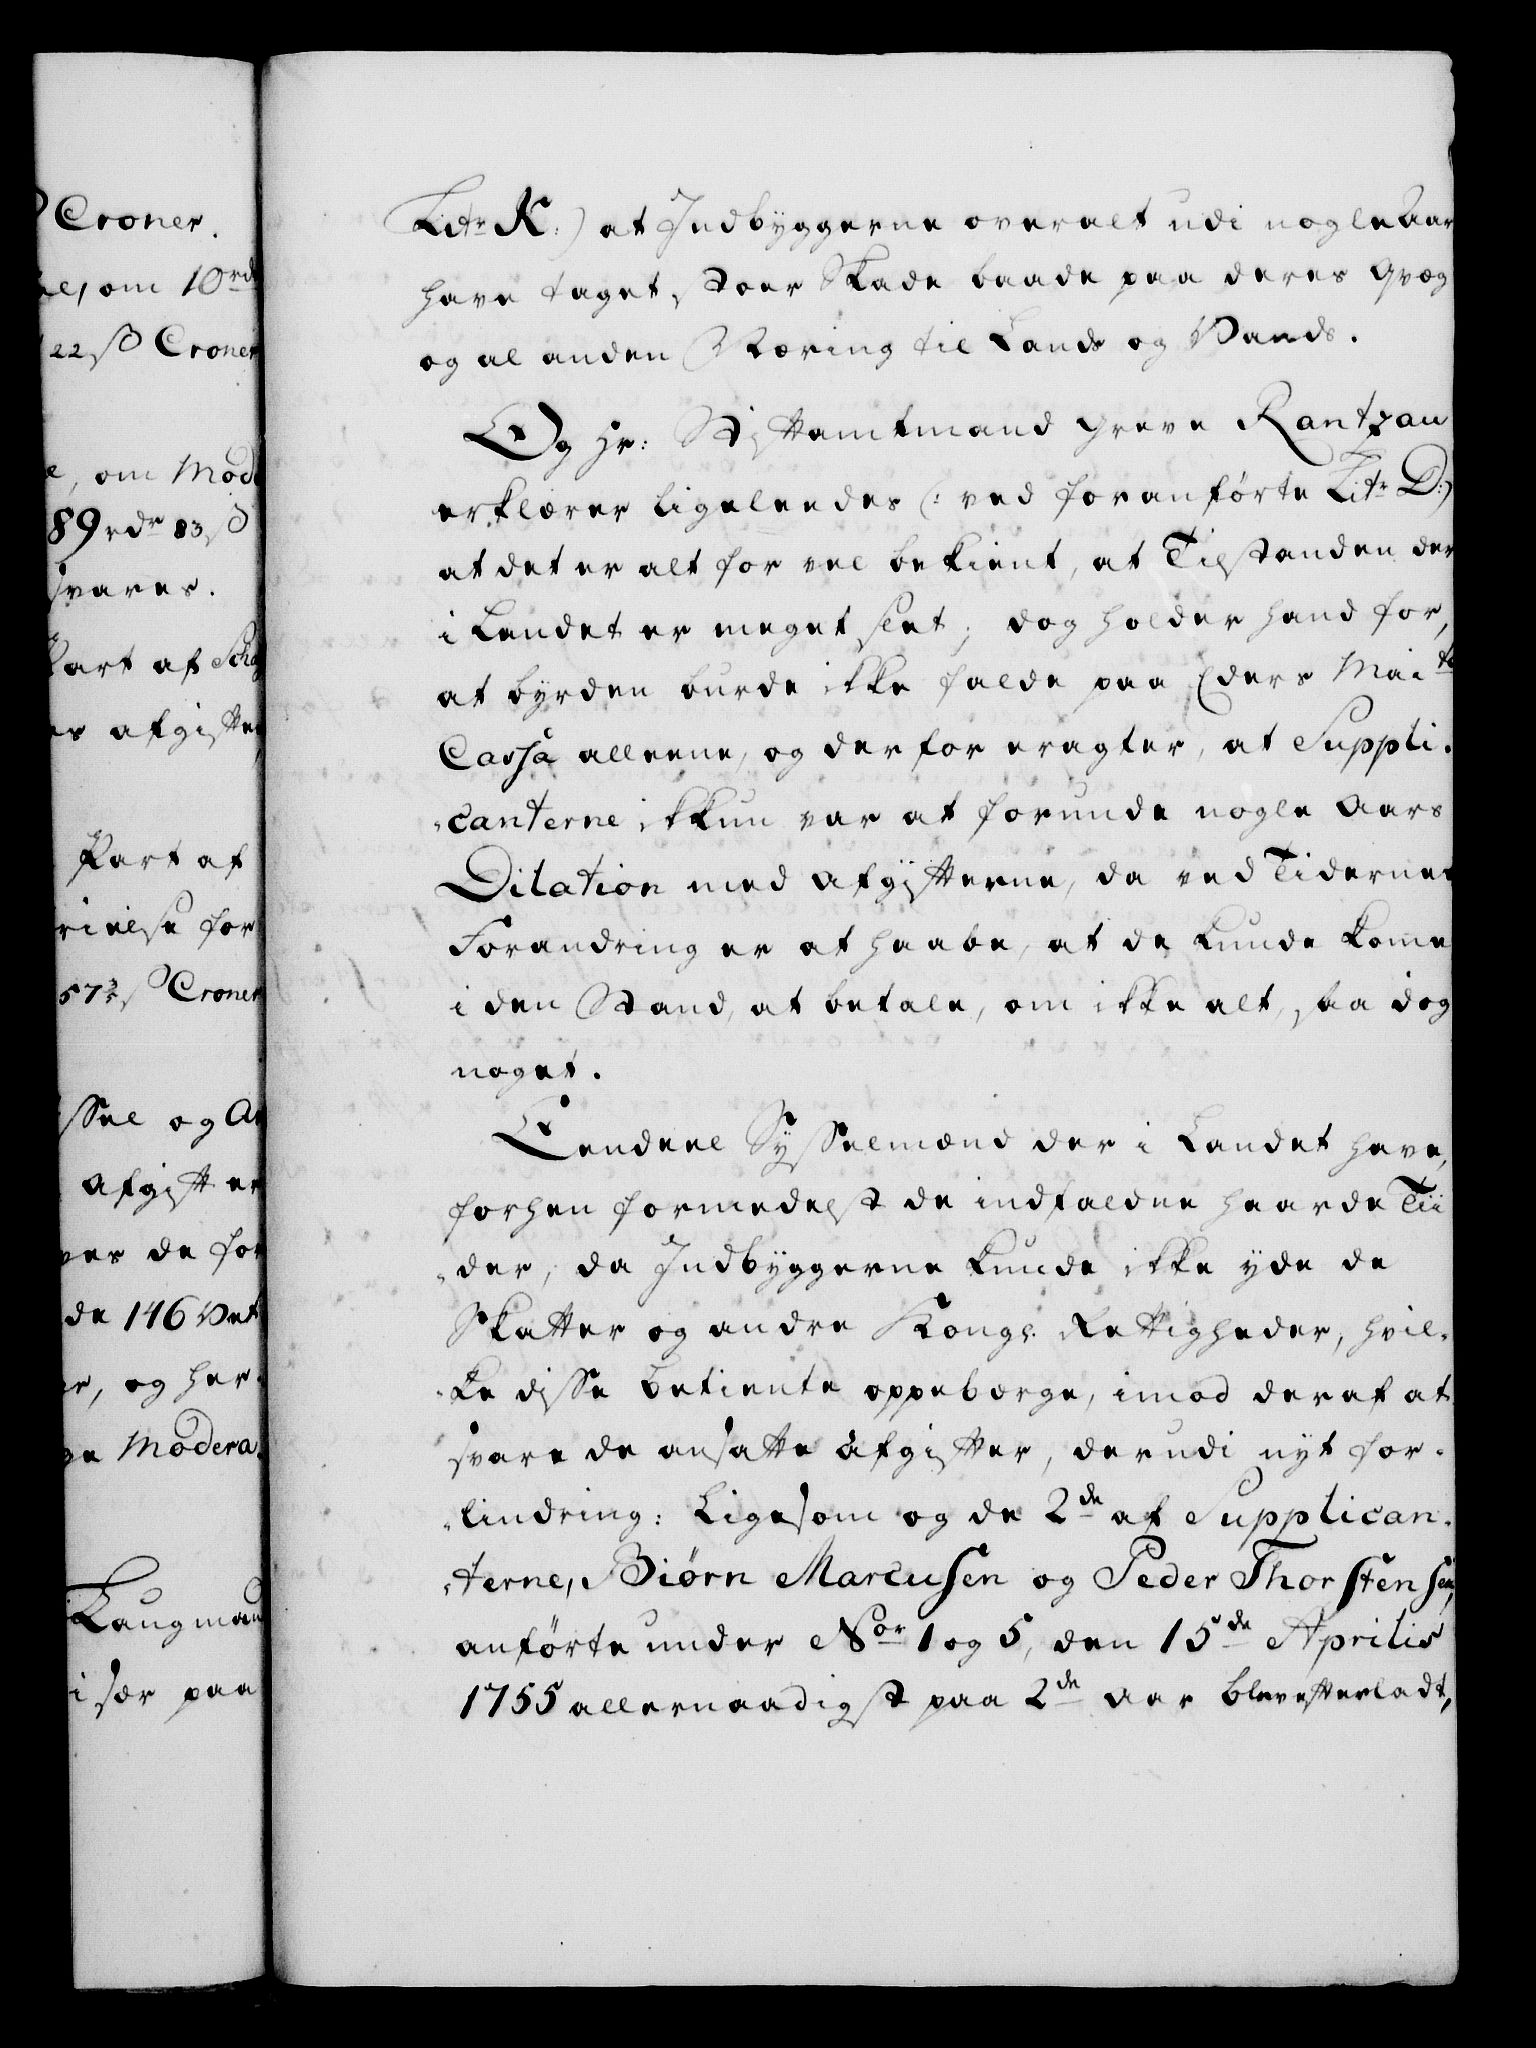 Croner.
el, om 10rd
22 ß Croner
e, om Mod
89 rdr 83 ß
svares.
Part af
es afgifter
Part af
rielse for
57 ß Croner
ssel og
Afgifter
ver de for
de 146 Vet
er, og her-
ge Modera.
Laugman
i sær paa
Litr K:) at Indbyggerne overalt udi nogle Aar
have taget stoer Skade baade paa deres Qvæg
og al anden Næring til Lands og Vands.
Og Hr: Stiftamtmand Greve Rantzau
erklærer ligeleedes (: ved foranførte Litr D:)
at det er alt for vel bekient, at Tilstanden der
i Landet er meget slet; dog holder hand for,
at byrden burde ikke falde paa Eders Maits
Cassa alleene, og derfor eragter, at Suppli-
canterne ikkun var at forunde nogle Aars
Dilation med Afgifterne, da ved Tidernes
Forandring er at haabe, at de kunde kome
i den Stand, at betale, om ikke alt, saa dog
noget.
Eendeel Sysselmænd der i Landet have,
forhen formedelst de indfaldne haarde Tii
der, da Indbyggerne kunde ikke yde de
Skatter og andre Kongl. Rettigheder, hvil-
ke disse betiente oppebærge, imod deraf at
svare de ansatte Afgifter, derudi nyt for-
lindring: Ligesom og de 2de af Supplican-
terne, Biørn Marcusen og Peder Thorstensen,
anførte under Nor 1 og 5, den 15de Aprilis
1755 allernaadigst paa 2de Aar blev efterladt,